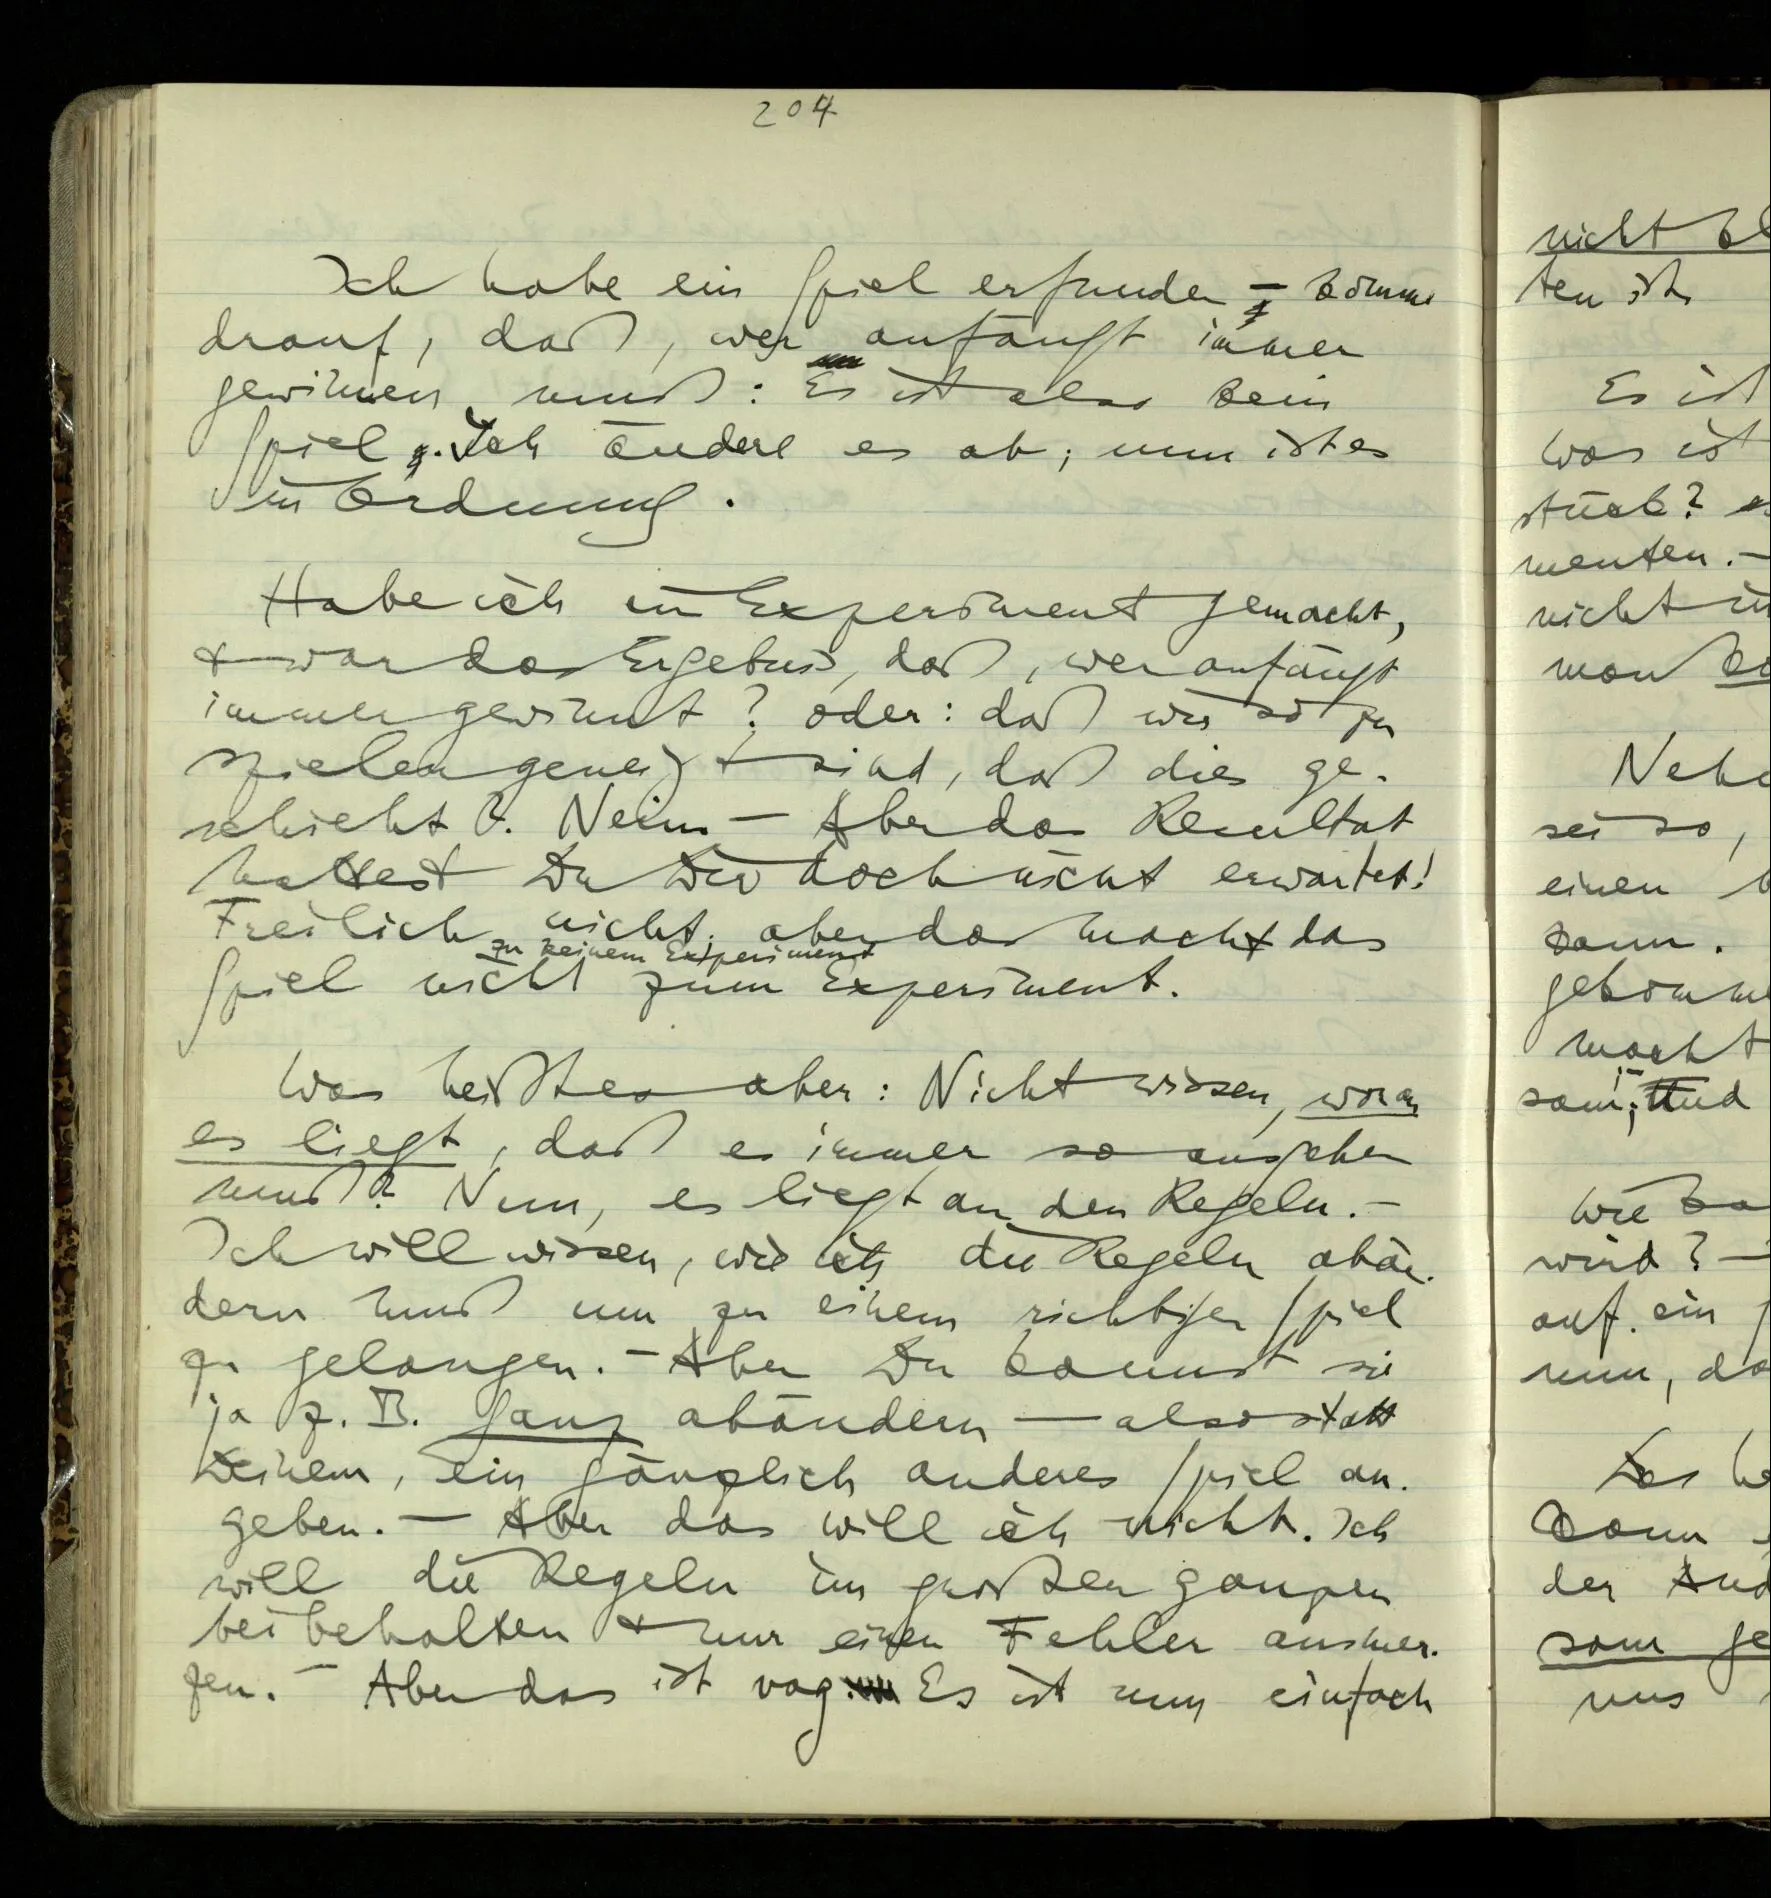 204
Ich habe ein Spiel erfunden – komme
drauf, daß, wer anfängt immer
gewinnen muß: Es ist also kein
Spiel. Ich ändere es ab; nun ist es
in Ordnung.
Habe ich ein Experiment gemacht,
& war das Ergebnis, daß, wer anfängt
immer gewinnt? oder: daß wir so zu
spielen geneigt sind, daß dies ge-
schieht? Nein. – Aber das Resultat
hattest Du Dir doch nicht erwartet!
Freilich nicht; aber das macht das
zu keinem Experiment
Spiel nicht zum Experiment.
Was heißt es aber: Nicht wissen, woran
es liegt, daß es immer so ausgehen
muß? Nun, es liegt an den Regeln. –
Ich will wissen, wie ich die Regeln abän-
dern muß um zu einem richtigen Spiel
zu gelangen. – Aber Du kannst sie
ja z.B. ganz abändern – also statt
Deinem, ein gänzlich anderes Spiel an-
geben. – Aber das will ich nicht. Ich
will die Regeln im großen ganzen
beibehalten & nur einen Fehler ausmer-
zen. – Aber das ist vag. Es ist nun einfach
nicht
ten ist
Es ist
Was ist
stück?
menten. –
nicht
man
sei so,
einen
kann.
macht
sam;
Wie
wird? –
auf. ein
nun,
Das
kann
der
sam
uns